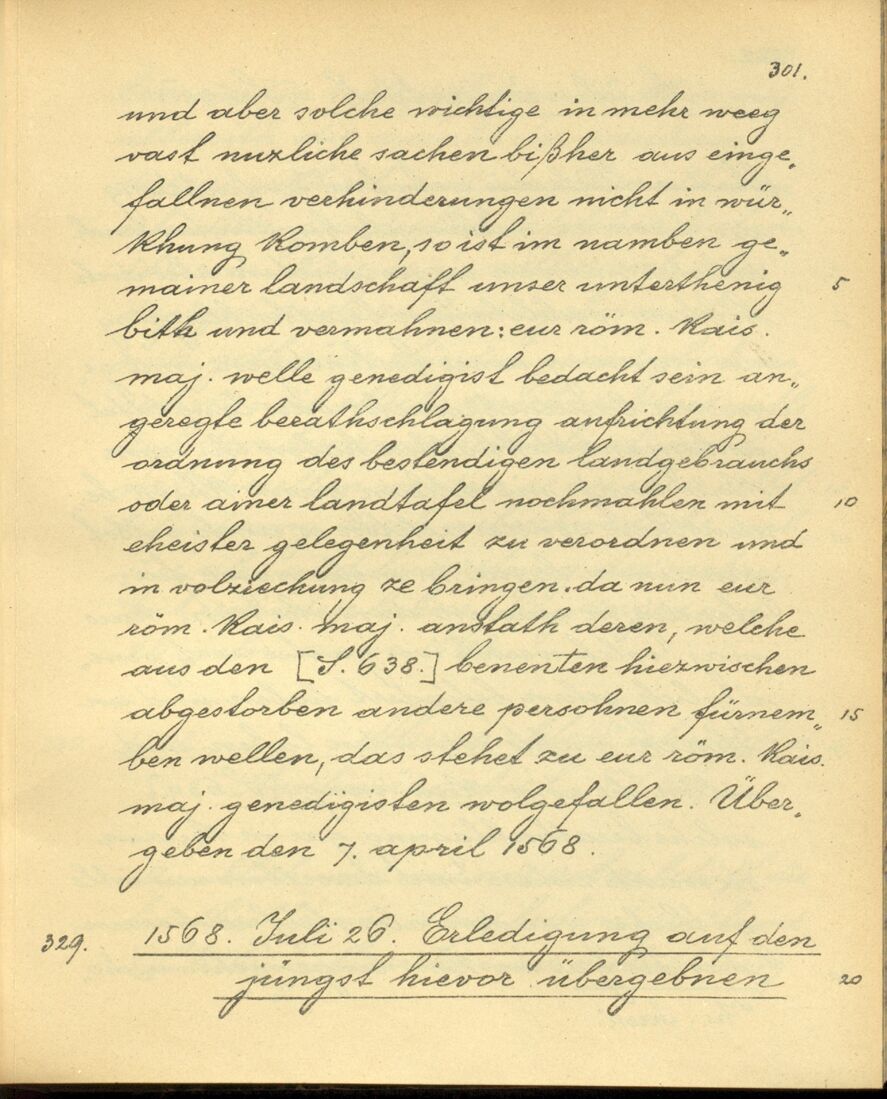 301.
und aber solche wichtige in mehr weeg
vast nuzliche sachen bißher aus einge„
fallnen verhinderungen nicht in wür„
khung komben, so ist im namben ge„
mainer landschaft unser unterthenig 5
bith und vermahnen: eur röm. kais.
maj. welle genedigist bedacht sein an„
geregte berathschlagung aufrichtung der
ordnung des bestendigen landgebrauchs
oder ainer landtafel nochmahlen mit 10
eheister gelegenheit zu verordnen und
in volziechung ze bringen. da nun eur
röm. kais. maj. anstath deren, welche
aus den [S. 638.] benenten hiezwischen
abgestorben andere persohnen fürnem„ 15
ben wellen, das stehet zu eur röm. kais.
maj. genedigisten wolgefallen. Über„
geben den 7. april 1568.
329. 1568. Juli 26. Erledigung auf den
jüngst hievor übergebnen 20